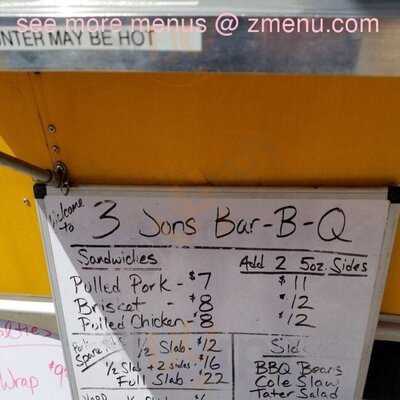 see more menus @ zmenu.com
UNTER MAY BE HOT
Welcome to
3 Sons Bar-B-Q
Sandwiches Add 2 5oz. Sides
Pulled Pork - $7 $11
Brisket - $8 $12
Pulled Chicken - $8 $12
Spare 1/2 Slab - $12
1/2 Slab + 2 sides - $16
Full Slab - $22
Side
BBQ Beans
Cole Slaw
Tater Salad
Wrap